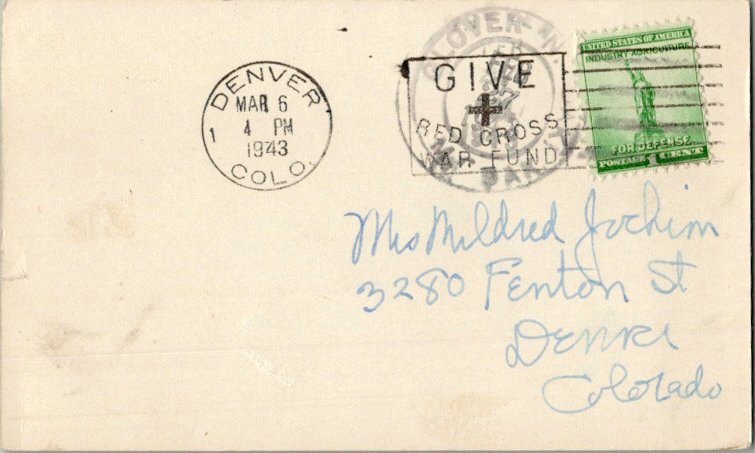 DENVER
MAR 6
1 4 PM
1943
COLO.
GIVE
RED CROSS
WAR FUND
UNITED STATES OF AMERICA
INDUSTRY AGRICULTURE
FOR DEFENSE
POSTAGE 1 CENT
Mrs Mildred Jochim
3280 Fenton St
Denver
Colorado